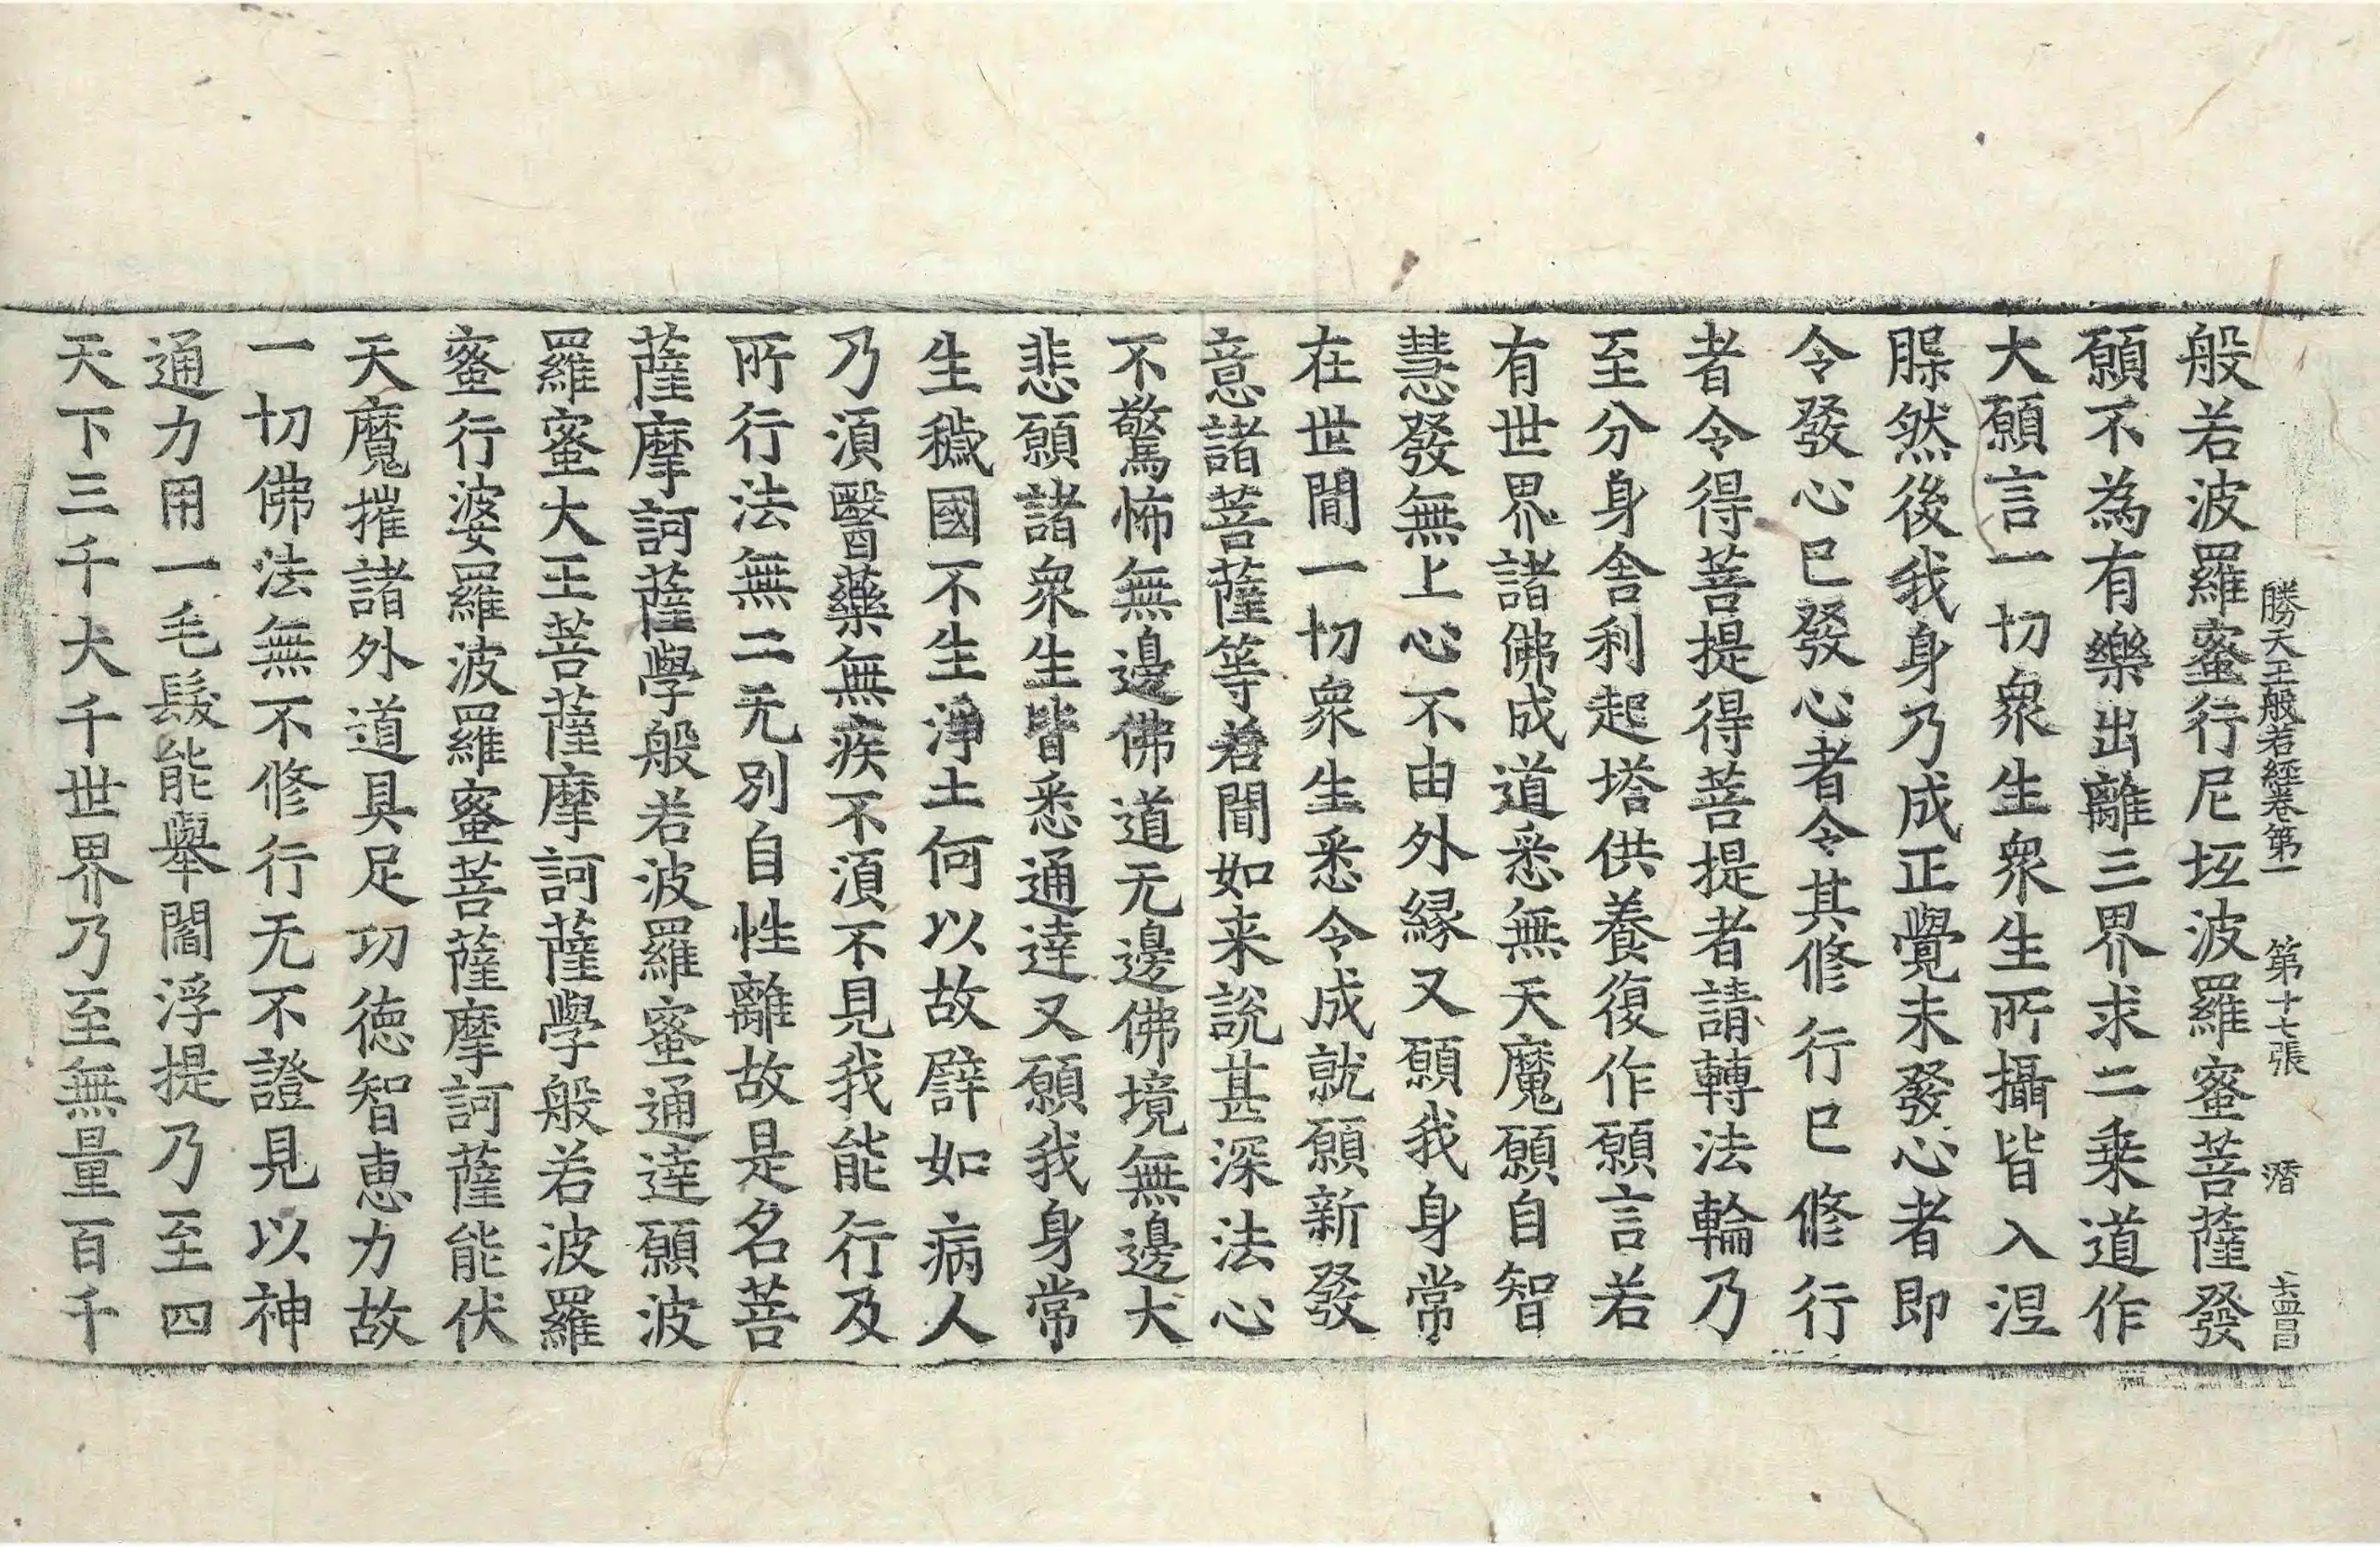 勝天王般若經卷第一 第十七張 潛
般若波羅蜜行尼坘波羅蜜菩薩發
願不為有樂出離三界求二乗道作
大願言一切衆生衆生所攝皆入涅
脲然後我身乃成正覺未發心者即
令發心已發心者令其修行已修行
者令得菩提得菩提者請轉法輪乃
至分身舎利起塔供養復作願言若
有世界諸佛成道悉無天魔願自智
慧發無上心不由外縁又願我身常
在世間一切衆生悉令成就願新發
意諸菩薩等若聞如来説甚深法心
不驚怖無邊佛道无邊佛境無邊大
悲願諸衆生皆悉通達又願我身常
生穢國不生淨土何以故譬如病人
乃湏醫藥無疾不湏不見我能行及
所行法無二无別自性離故是名菩
薩摩訶薩學般若波羅蜜通達願波
羅蜜大王菩薩摩訶薩學般若波羅
蜜行婆羅波羅蜜菩薩摩訶薩能伏
天魔摧諸外道具足功徳智恵力故
一切佛法無不修行无不證見以神
通力用一毛髮能舉閻浮提乃至四
天下三千大千世界乃至無量百千